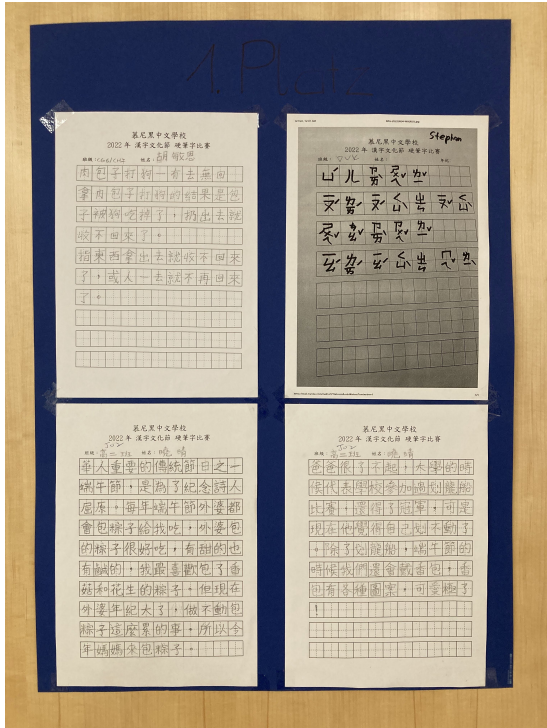 1. Platz
慕尼黑中文學校
2022 年 漢字文化節 硬筆字比賽
姓名：胡敏恩
肉包子打狗一有去無回
拿肉包子打狗的結果是包
子被狗吃掉了，扔出去就
收不回來了。
指東西拿出去就收不回來
了，或人一去就不再回來
了。
Stephan
慕尼黑中文學校
2022 年 漢字文化節 硬筆字比賽
班級：ㄉㄨㄟ 姓名： 年紀
慕尼黑中文學校
2022 年 漢字文化節 硬筆字比賽
JO2
班級：高二班 姓名：曉晴
華人重要的傳統節日之一
端午節，是為了紀念詩人
屈原。每年端午節外婆都
會包粽子給我吃，外婆包
的粽子很好吃，有甜的也
有鹹的，我最喜歡包了香
菇和花生的粽子。但現在
外婆年紀大了，做不動包
粽子這麼累的事，所以今
年媽媽來包粽子。
慕尼黑中文學校
2022 年 漢字文化節 硬筆字比賽
JO2
班級：高二班 姓名：曉晴
爸爸很了不起，大學的時
候代表學校參加過划龍船
比賽，還得了冠軍，可是
現在他覺得自己划不動了
。除了划龍船，端午節的
時候我們還會戴香包，香
包有各種圖案，可愛極了
！